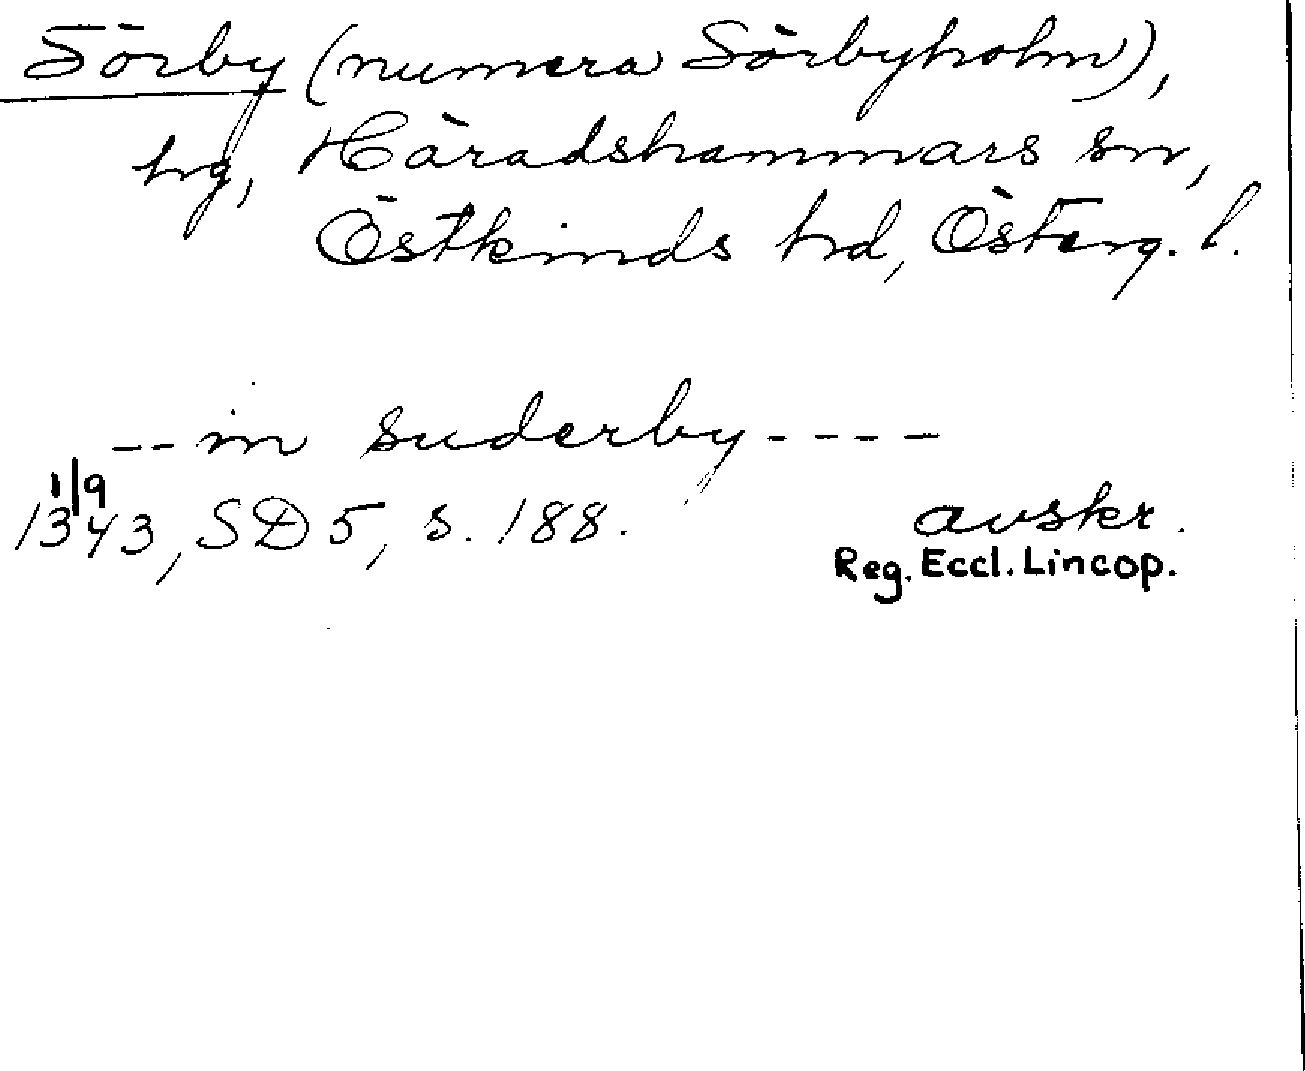 Sörby (numera Sörbyholm),
hg, Häradshammars sn,
Östkinds hd, Österg. l.
-- in suderby ----
1/9
1343, SD 5, s. 188. avskr.
Reg. Eccl. Lincop.